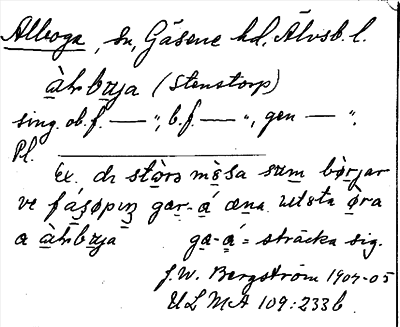 Alboga, sn, Gäsene hd, Älvsb. l.
àl.bωja (Stenstorp)
sing. ob. f. — ", b. f. — ", gen — ",
Pl.
Ex. dr stòrə mὲsa sωm bòrjar
ve fáʒəpıŋ gær-á æna utsta òra
a àl.bωja gæ-á = sträcka sig.
J. W. Bergström 1904-05
ULMA 109:233b.